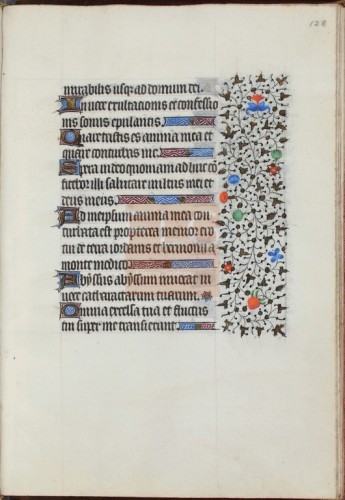 128
mirabilis usq; ad domum dei.
In voce exultationis et confessio
nis sonus epulantis.
Quare tristis es anima mea et
quare conturbas me.
Spera in deo quoniam adhuc con
fitebor illi salutare vultus mei et
deus meus.
Ad meipsum anima mea con
turbata est propterea memor ero
tui de terra iordanis et hermonii a
monte modico.
Abyssus abyssum invocat in
voce cataractarum tuarum.
Omnia excelsa tua et fluctus
tui super me transierunt.